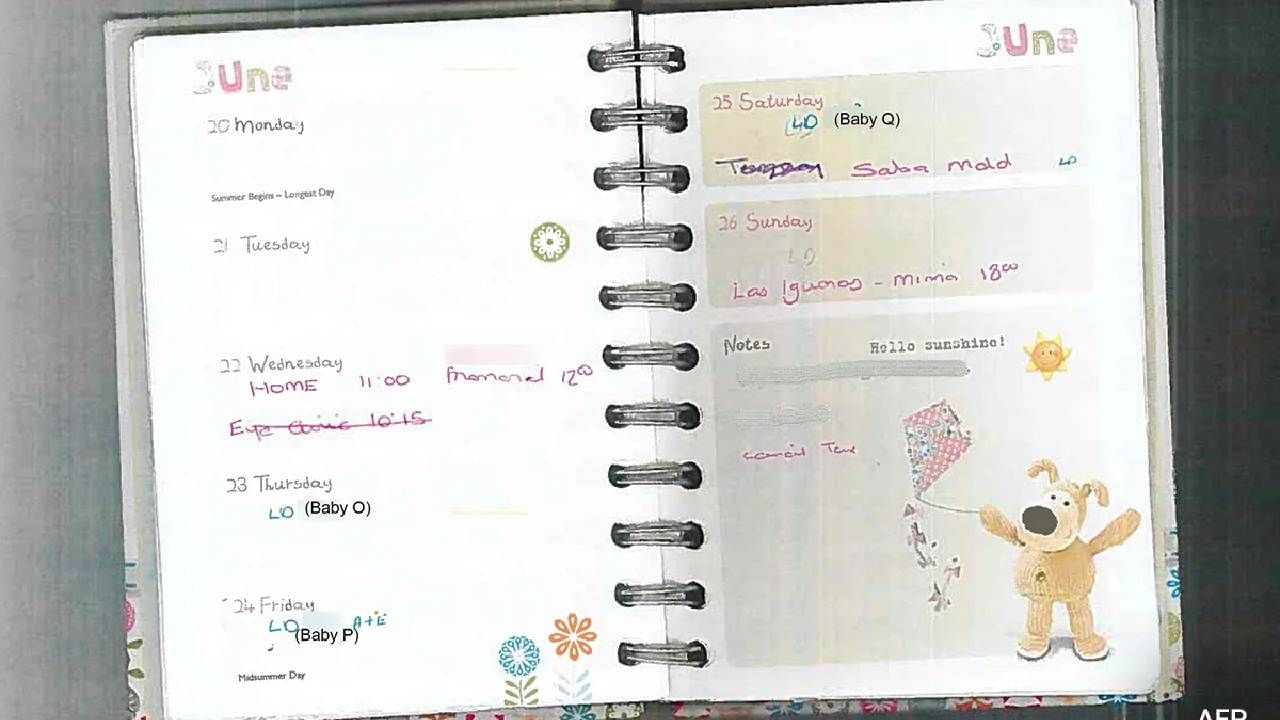 June
20 Monday
Summer Begins – Longest Day
21 Tuesday
22 Wednesday
HOME 11:00 12⁰⁰
Eye Clinic 10:15
23 Thursday
LD (Baby O)
24 Friday
LD A+E
(Baby P)
Midsummer Day
June
25 Saturday
LD (Baby Q)
Salsa LD
26 Sunday
LD
Las Iguanas - 18⁰⁰
Notes Hello sunshine!
AFP